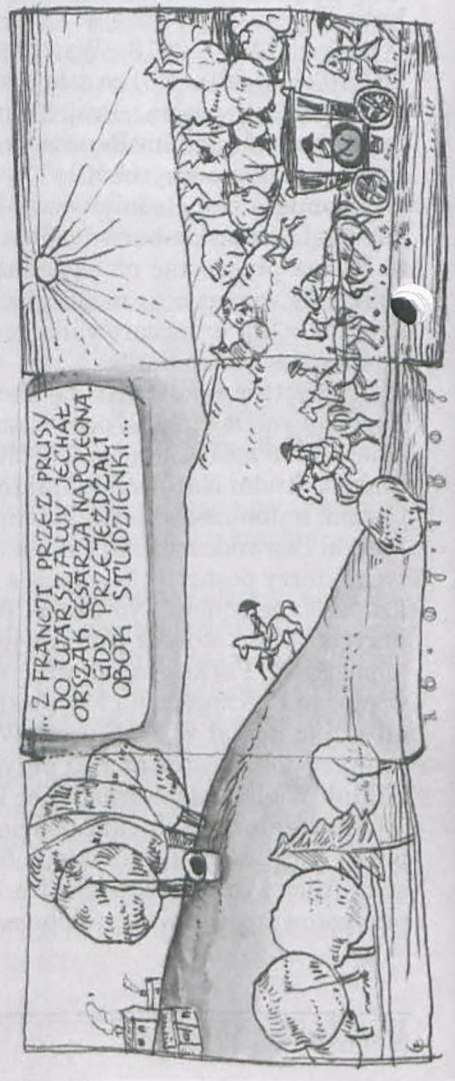 ... Z FRANCJI PRZEZ PRUSY
DO WARSZAWY JECHAŁ
ORSZAK CESARZA NAPOLEONA.
GDY PRZEJEŻDŻALI
OBOK STUDZIENKI...